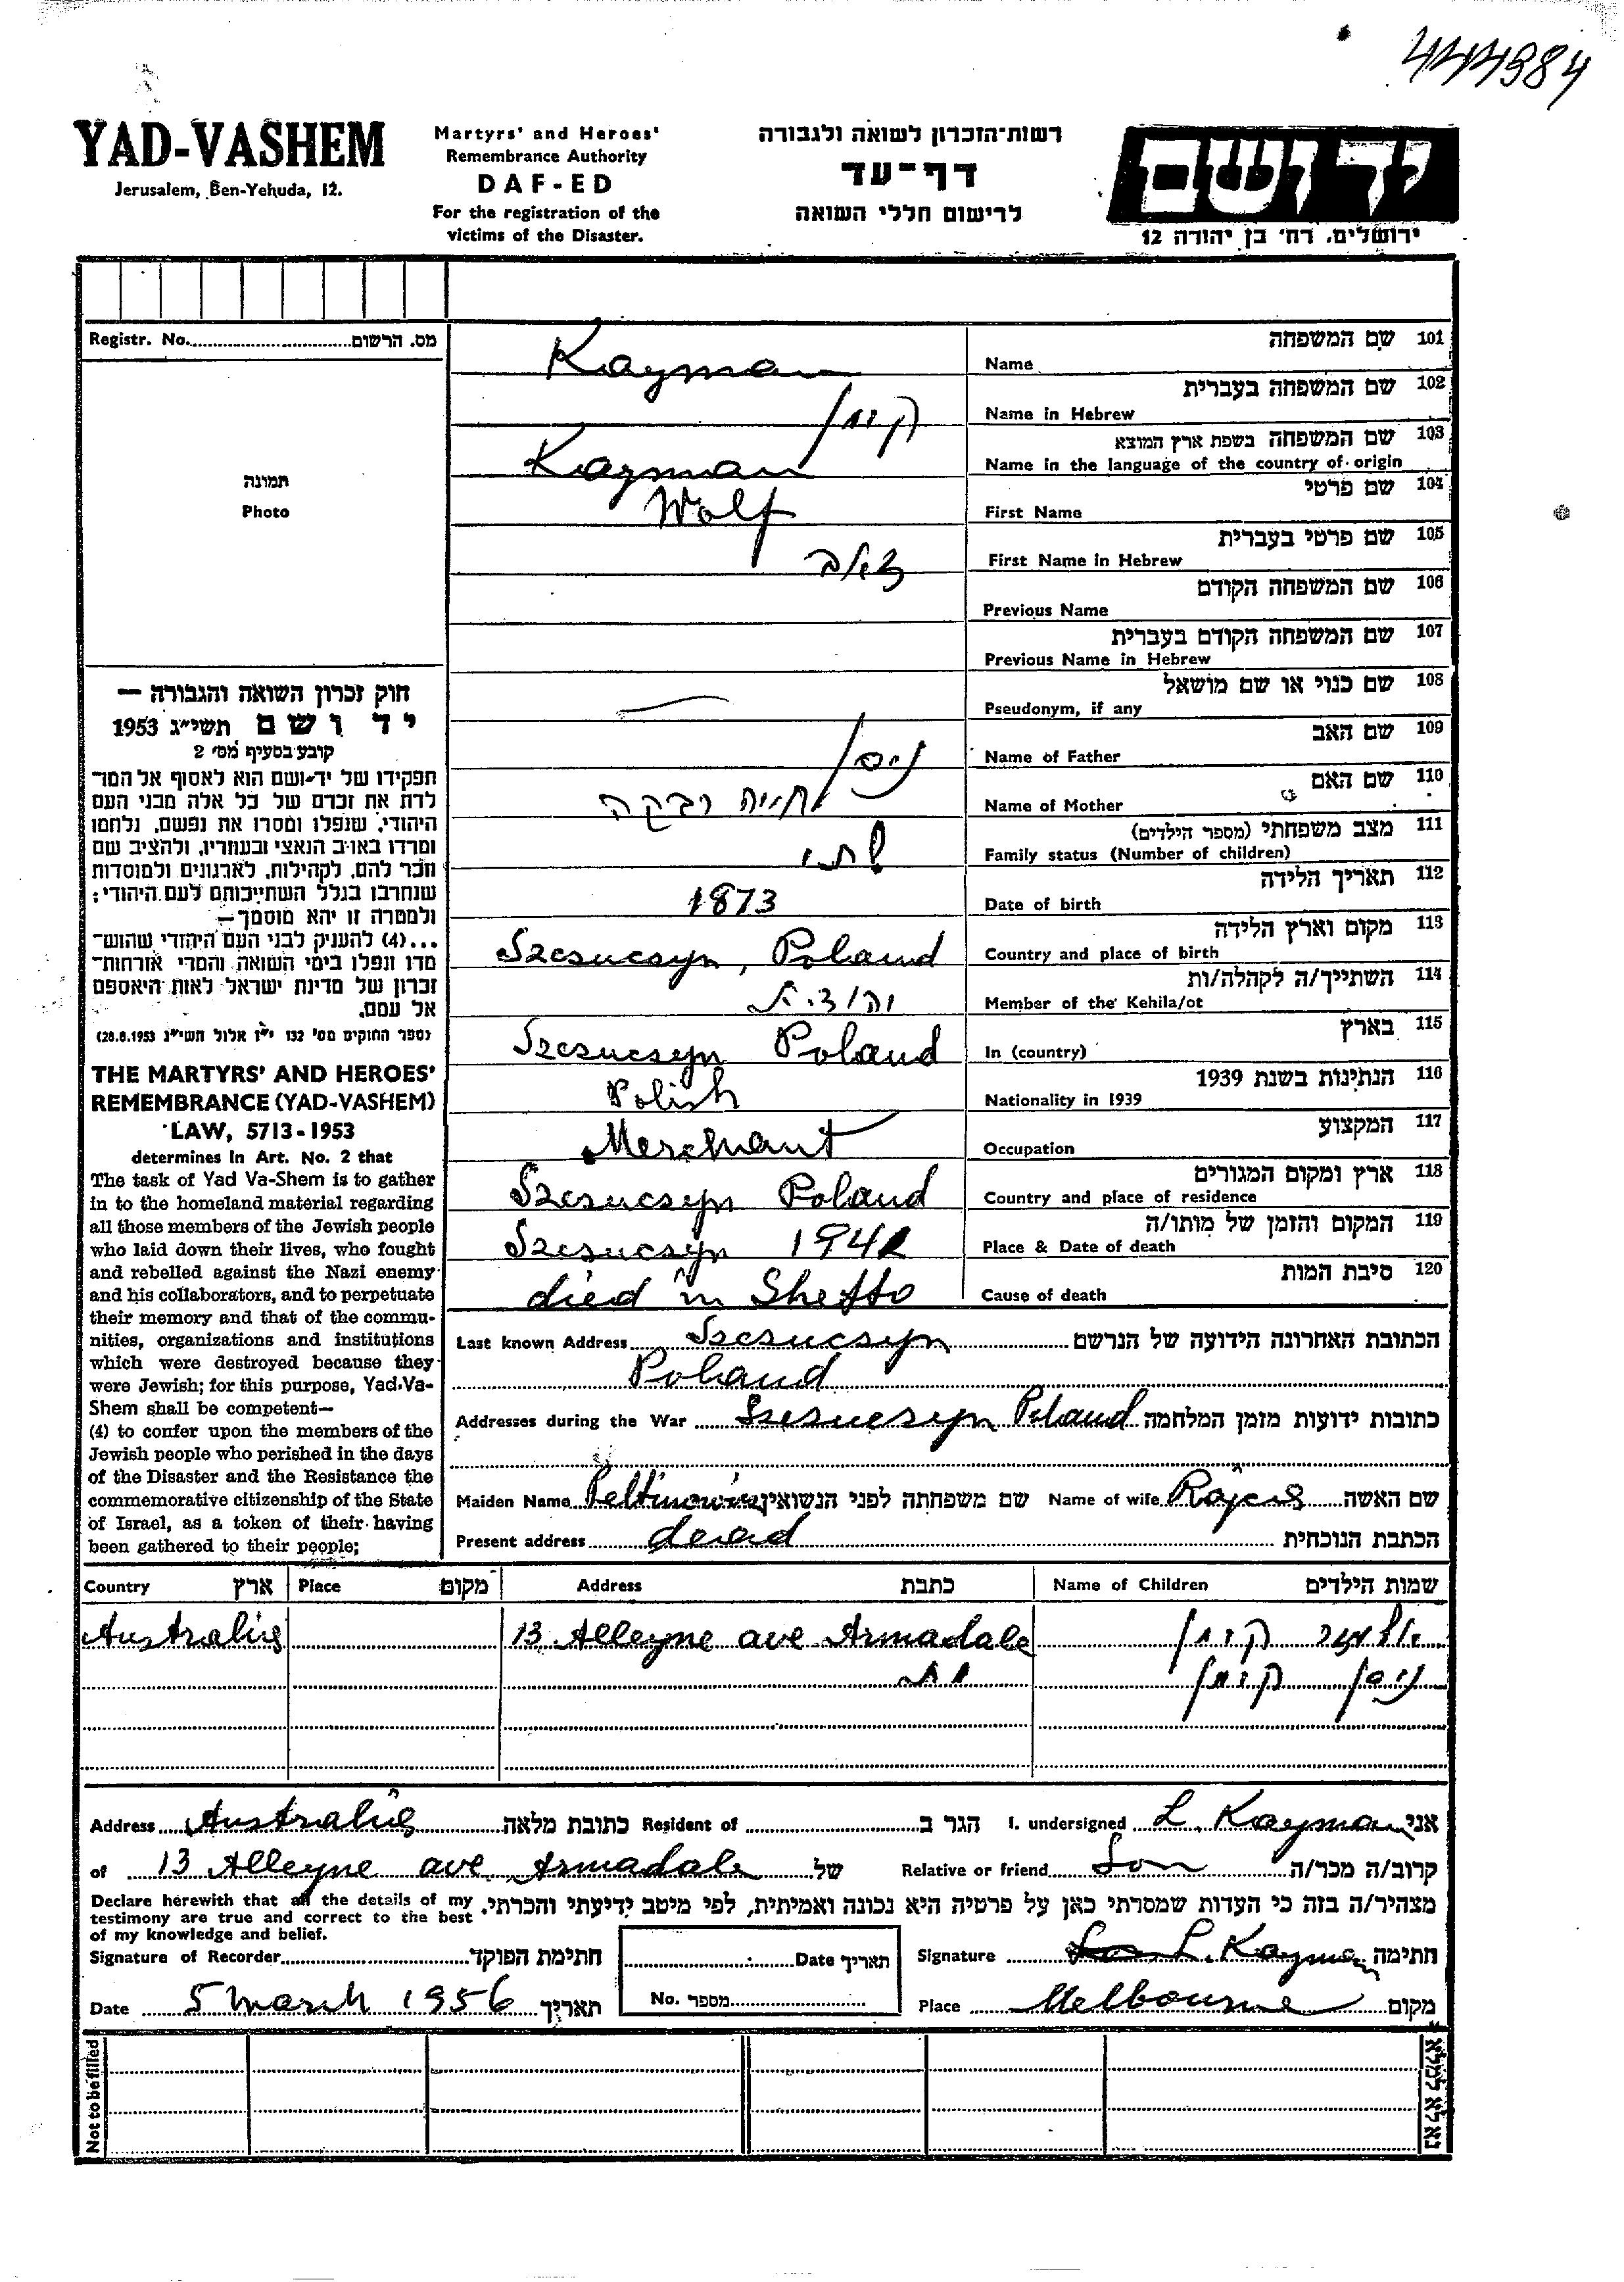 444984
YAD-VASHEM
Jerusalem, Ben-Yehuda, 12.
Martyrs' and Heroes'
Remembrance Authority
DAF-ED
For the registration of the
victims of the Disaster.
רשות־הזכרון לשואה ולגבורה
דף־עד
לרישום חללי השואה
יד ושם
ירושלים. רח' בן יהודה 12
Registr. No. מס. הרשום
תמונה
Photo
Kayman Name שם המשפחה 101
קימן Name in Hebrew שם המשפחה בעברית 102
Kayman Name in the language of the country of origin שם המשפחה בשפת ארץ המוצא 103
Wolf First Name שם פרטי 104
First Name in Hebrew שם פרטי בעברית 105
Previous Name שם המשפחה הקודם 106
Previous Name in Hebrew שם המשפחה הקודם בעברית 107
Pseudonym, if any שם כנוי או שם מושאל 108
ניסן Name of Father שם האב 109
חייה רבקה Name of Mother שם האם 110
שתי Family status (Number of children) מצב משפחתי (מספר הילדים) 111
1873 Date of birth תאריך הלידה 112
Szcsucsyn, Poland Country and place of birth מקום וארץ הלידה 113
Member of the Kehila/ot השתייך/ה לקהלה/ות 114
Szcsucsyn Poland In (country) בארץ 115
Polish Nationality in 1939 הנתינות בשנת 1939 116
Merchant Occupation המקצוע 117
Szcsucsyn Poland Country and place of residence ארץ ומקום המגורים 118
Szcsucsyn Place & Date of death המקום והזמן של מותו/ה 119
died in Ghetto Cause of death סיבת המות 120
חוק זכרון השואה והגבורה —
יד ושם תשי״ג 1953
קובע בסעיף מס' 2
תפקידו של יד־ושם הוא לאסוף אל המו־
לדת את זכרם של כל אלה מבני העם
היהודי, שנפלו ומסרו את נפשם, נלחמו
ומרדו באויב הנאצי ובעוזריו, ולהציב שם
וזכר להם, לקהילות, לארגונים ולמוסדות
שנחרבו בגלל השתייכותם לעם היהודי;
ולמטרה זו יהא מוסמך—
...(4) להעניק לבני העם היהודי שהוש־
מדו ונפלו בימי השואה והמרי אזרחות־
זכרון של מדינת ישראל לאות היאספם
אל עמם.
(ספר החוקים מס' 132 י״ז אלול תשי״ג 28.8.1953)
THE MARTYRS' AND HEROES'
REMEMBRANCE (YAD-VASHEM)
LAW, 5713-1953
determines in Art. No. 2 that
The task of Yad Va-Shem is to gather
in to the homeland material regarding
all those members of the Jewish people
who laid down their lives, who fought
and rebelled against the Nazi enemy
and his collaborators, and to perpetuate
their memory and that of the commu-
nities, organizations and institutions
which were destroyed because they
were Jewish; for this purpose, Yad-Va-
Shem shall be competent—
(4) to confer upon the members of the
Jewish people who perished in the days
of the Disaster and the Resistance the
commemorative citizenship of the State
of Israel, as a token of their having
been gathered to their people;
Last known Address Szcsucsyn הכתובת האחרונה הידועה של הנרשם
Poland
Addresses during the War Szcsucsyn Poland כתובות ידועות מזמן המלחמה
Maiden Name שם משפחתה לפני הנשואין Name of wife שם האשה
Present address dead הכתבת הנוכחית
Country ארץ Place מקום Address כתבת Name of Children שמות הילדים
Australia 13 Alleyne ave Armadale קימן
ניסן קימן
Address Australia כתובת מלאה Resident of הגר ב I. undersigned L. Kayman אני
of 13 Alleyne ave. Armadale של Relative or friend Son קרוב/ה מכר/ה
Declare herewith that all the details of my
testimony are true and correct to the best
of my knowledge and belief.
מצהיר/ה בזה כי העדות שמסרתי כאן על פרטיה היא נכונה ואמיתית, לפי מיטב ידיעתי והכרתי.
Signature of Recorder חתימת הפוקד Date תאריך Signature L. Kayman חתימה
Date 5 march 1956 תאריך No. מספר Place Melbourne מקום
Not to be filled נא לא למלא